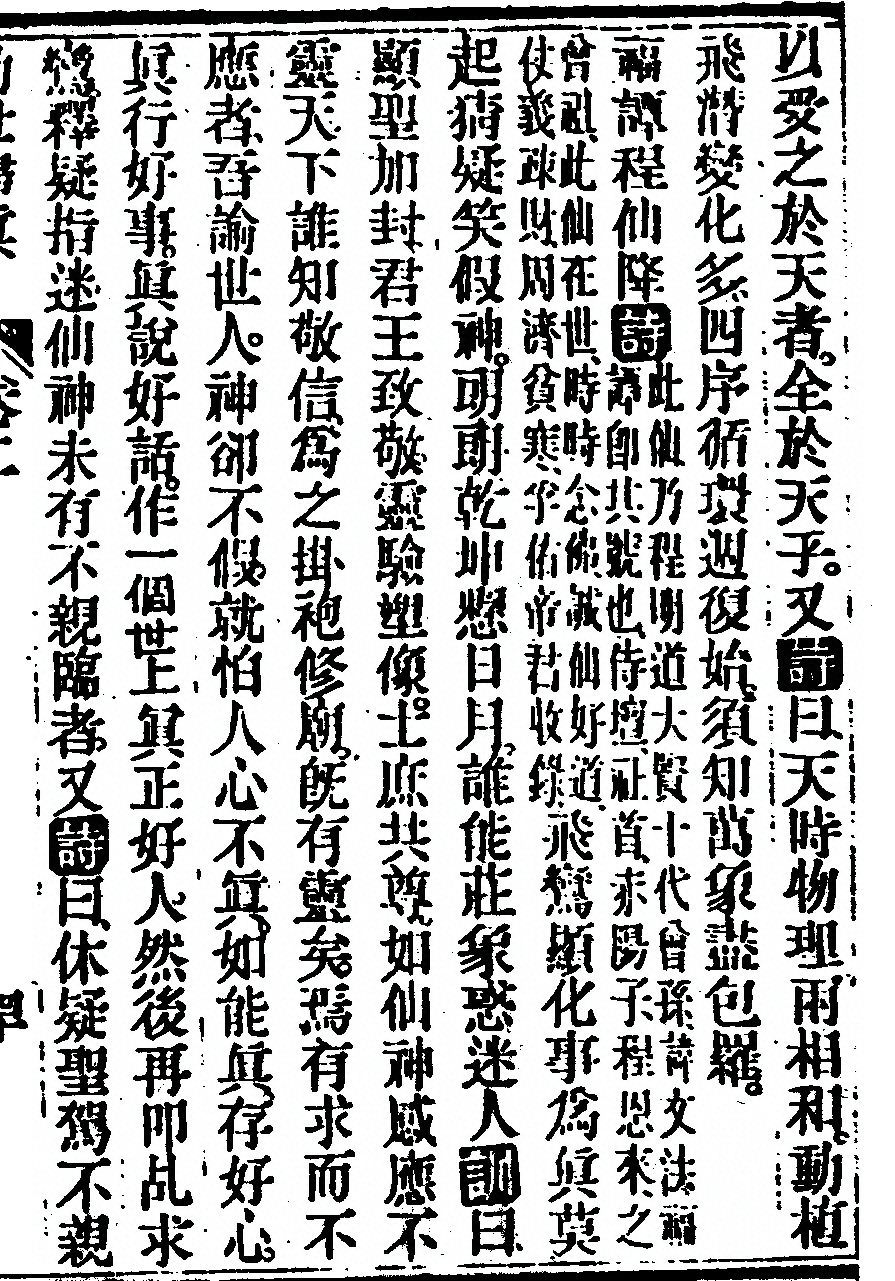 以受之於天者。全於天乎。又詩曰、天時物理兩相和。動植
飛潛變化多。四序循環週復始。須知萬象盡包羅。
福譚程仙降詩此仙乃程明道大賢十代曾孫諱文法福
譚卽其號也、侍壇、社首、耒陽子、程恩來、之
曾祖、此仙在世、時時念佛誠仙好道、
仗義疎財、周濟貧寒、孚佑帝君收錄、飛鸞顯化事爲眞莫
起猜疑笑假神。明明乾坤懸日月、誰能莊象惑迷人訓曰、
顯聖加封、君王致敬、靈驗塑像。士庶共尊、如仙神感應不
靈天下誰知敬信、爲之掛袍修廟。旣有靈矣。焉有求而不
應者、吾諭世人。神卻不假、就怕人心不眞。如能眞、存好心。
眞行好事。眞說好話。作一個世上眞正好人、然後再叩乩求
鸞釋疑指迷、仙神未有不親臨者、又詩曰、休疑聖駕不親